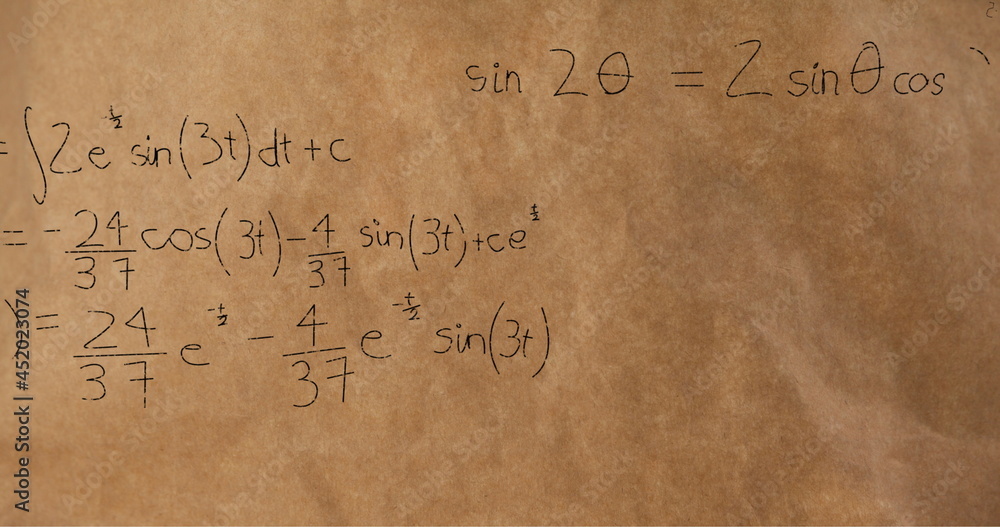 sin 2θ = 2 sinθ cos
= ∫2e^½ sin(3t)dt+c
= -24/37 cos(3t) - 4/37 sin(3t)+ce^t/2
= 24/37 e^-t/2 - 4/37 e^-t/2 sin(3t)
Adobe Stock | #452023074